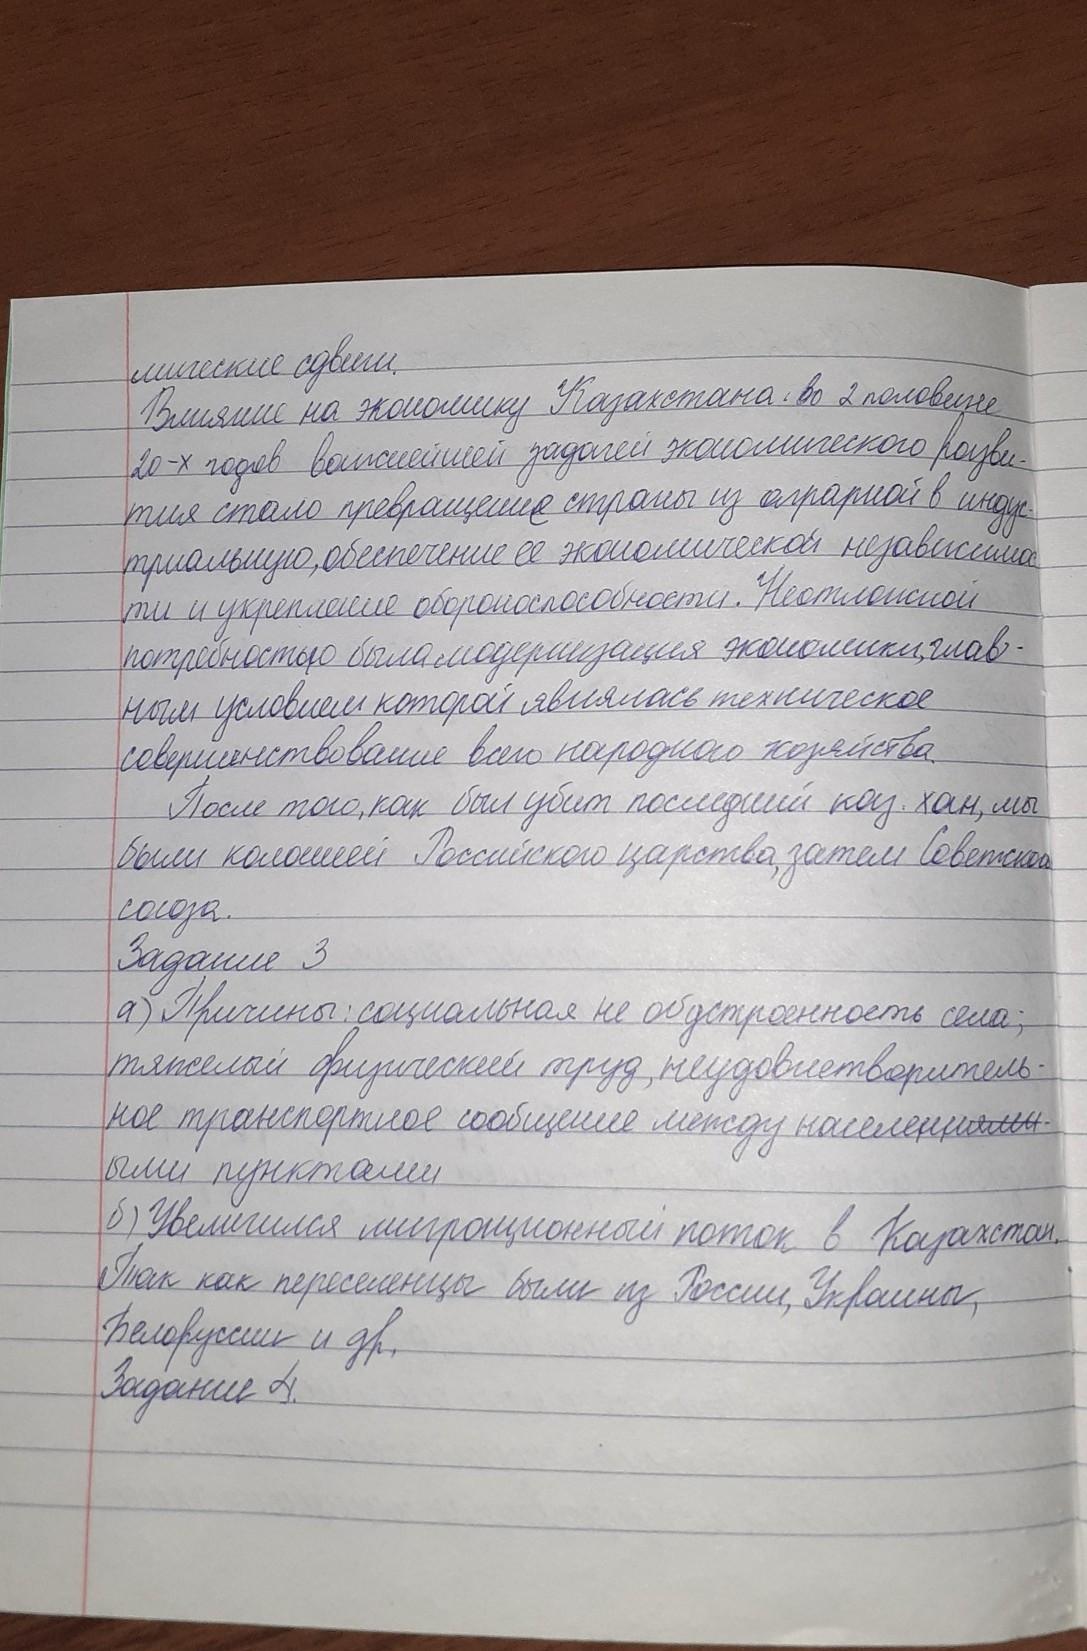 мические сдвиги.
Влияние на экономику Казахстана: во 2 половине
20-х годов важнейшей задачей экономического разви-
тия стало превращение страны из аграрной в индус-
триальную, обеспечение ее экономической независимос
ти и укрепление обороноспособности. Неотложной
потребностью была модернизация экономики, глав-
ным условием которой являлась техническое
совершенствование всего народного хозяйства.
После того, как был убит последний каз. хан, мы
были колонией Российского царства, затем Советского
союза.
Задание 3
а) Причины: социальная не обустроенность села;
тяжелый физический труд, неудовлетворитель-
ное транспортное сообщение между населенн-
ыми пунктами
б) Увеличился миграционный поток в Казахстан.
Так как переселенцы были из России, Украины,
Белоруссии и др.
Задание 4.